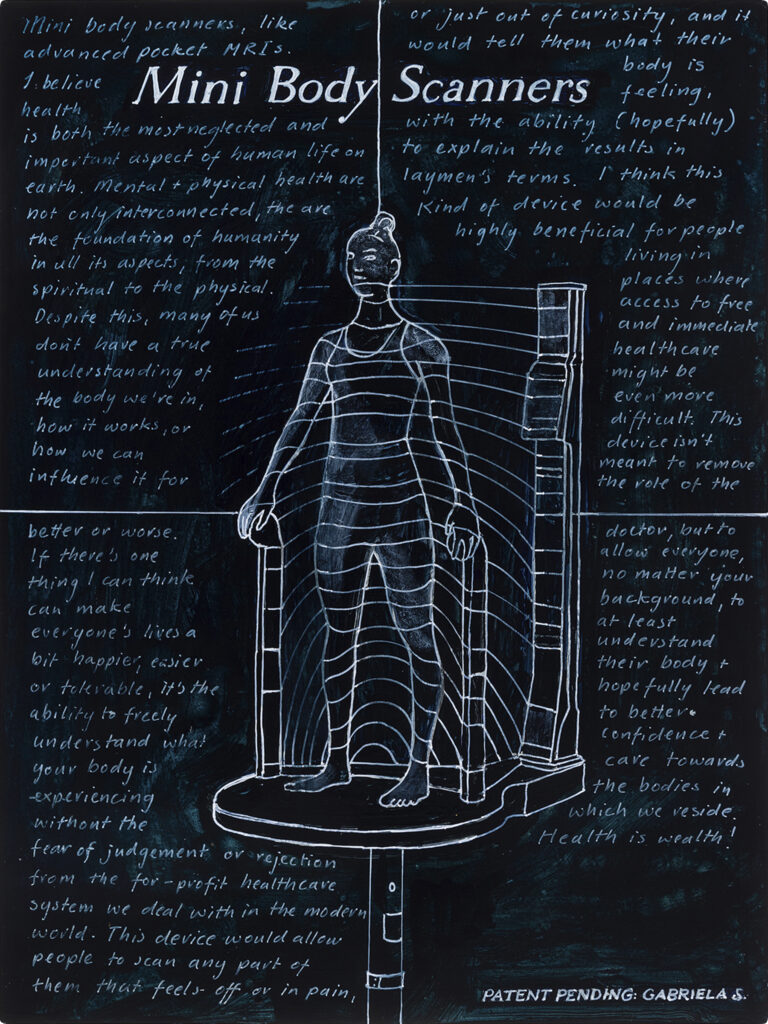 Mini Body Scanners
Mini body scanners, like
advanced pocket MRIs.
I believe
health
is both the most neglected and
important aspect of human life on
earth. Mental + physical health are
not only interconnected, the are
the foundation of humanity
in all its aspects, from the
spiritual to the physical.
Despite this, many of us
don't have a true
understanding of
the body we're in,
how it works, or
how we can
influence it for
better or worse.
If there's one
thing I can think
can make
everyone's lives a
bit happier, easier
or tolerable, it's the
ability to freely
understand what
your body is
experiencing
without the
fear of judgement or rejection
from the for-profit healthcare
system we deal with in the modern
world. This device would allow
people to scan any part of
them that feels off or in pain,
or just out of curiosity, and it
would tell them what their
body is
feeling,
with the ability (hopefully)
to explain the results in
laymen's terms. I think this
kind of device would be
highly beneficial for people
living in
places where
access to free
and immediate
healthcare
might be
even more
difficult. This
device isn't
meant to remove
the role of the
doctor, but to
allow everyone,
no matter your
background, to
at least
understand
their body +
hopefully lead
to better
confidence +
care towards
the bodies in
which we reside.
Health is wealth!
PATENT PENDING: GABRIELA S.